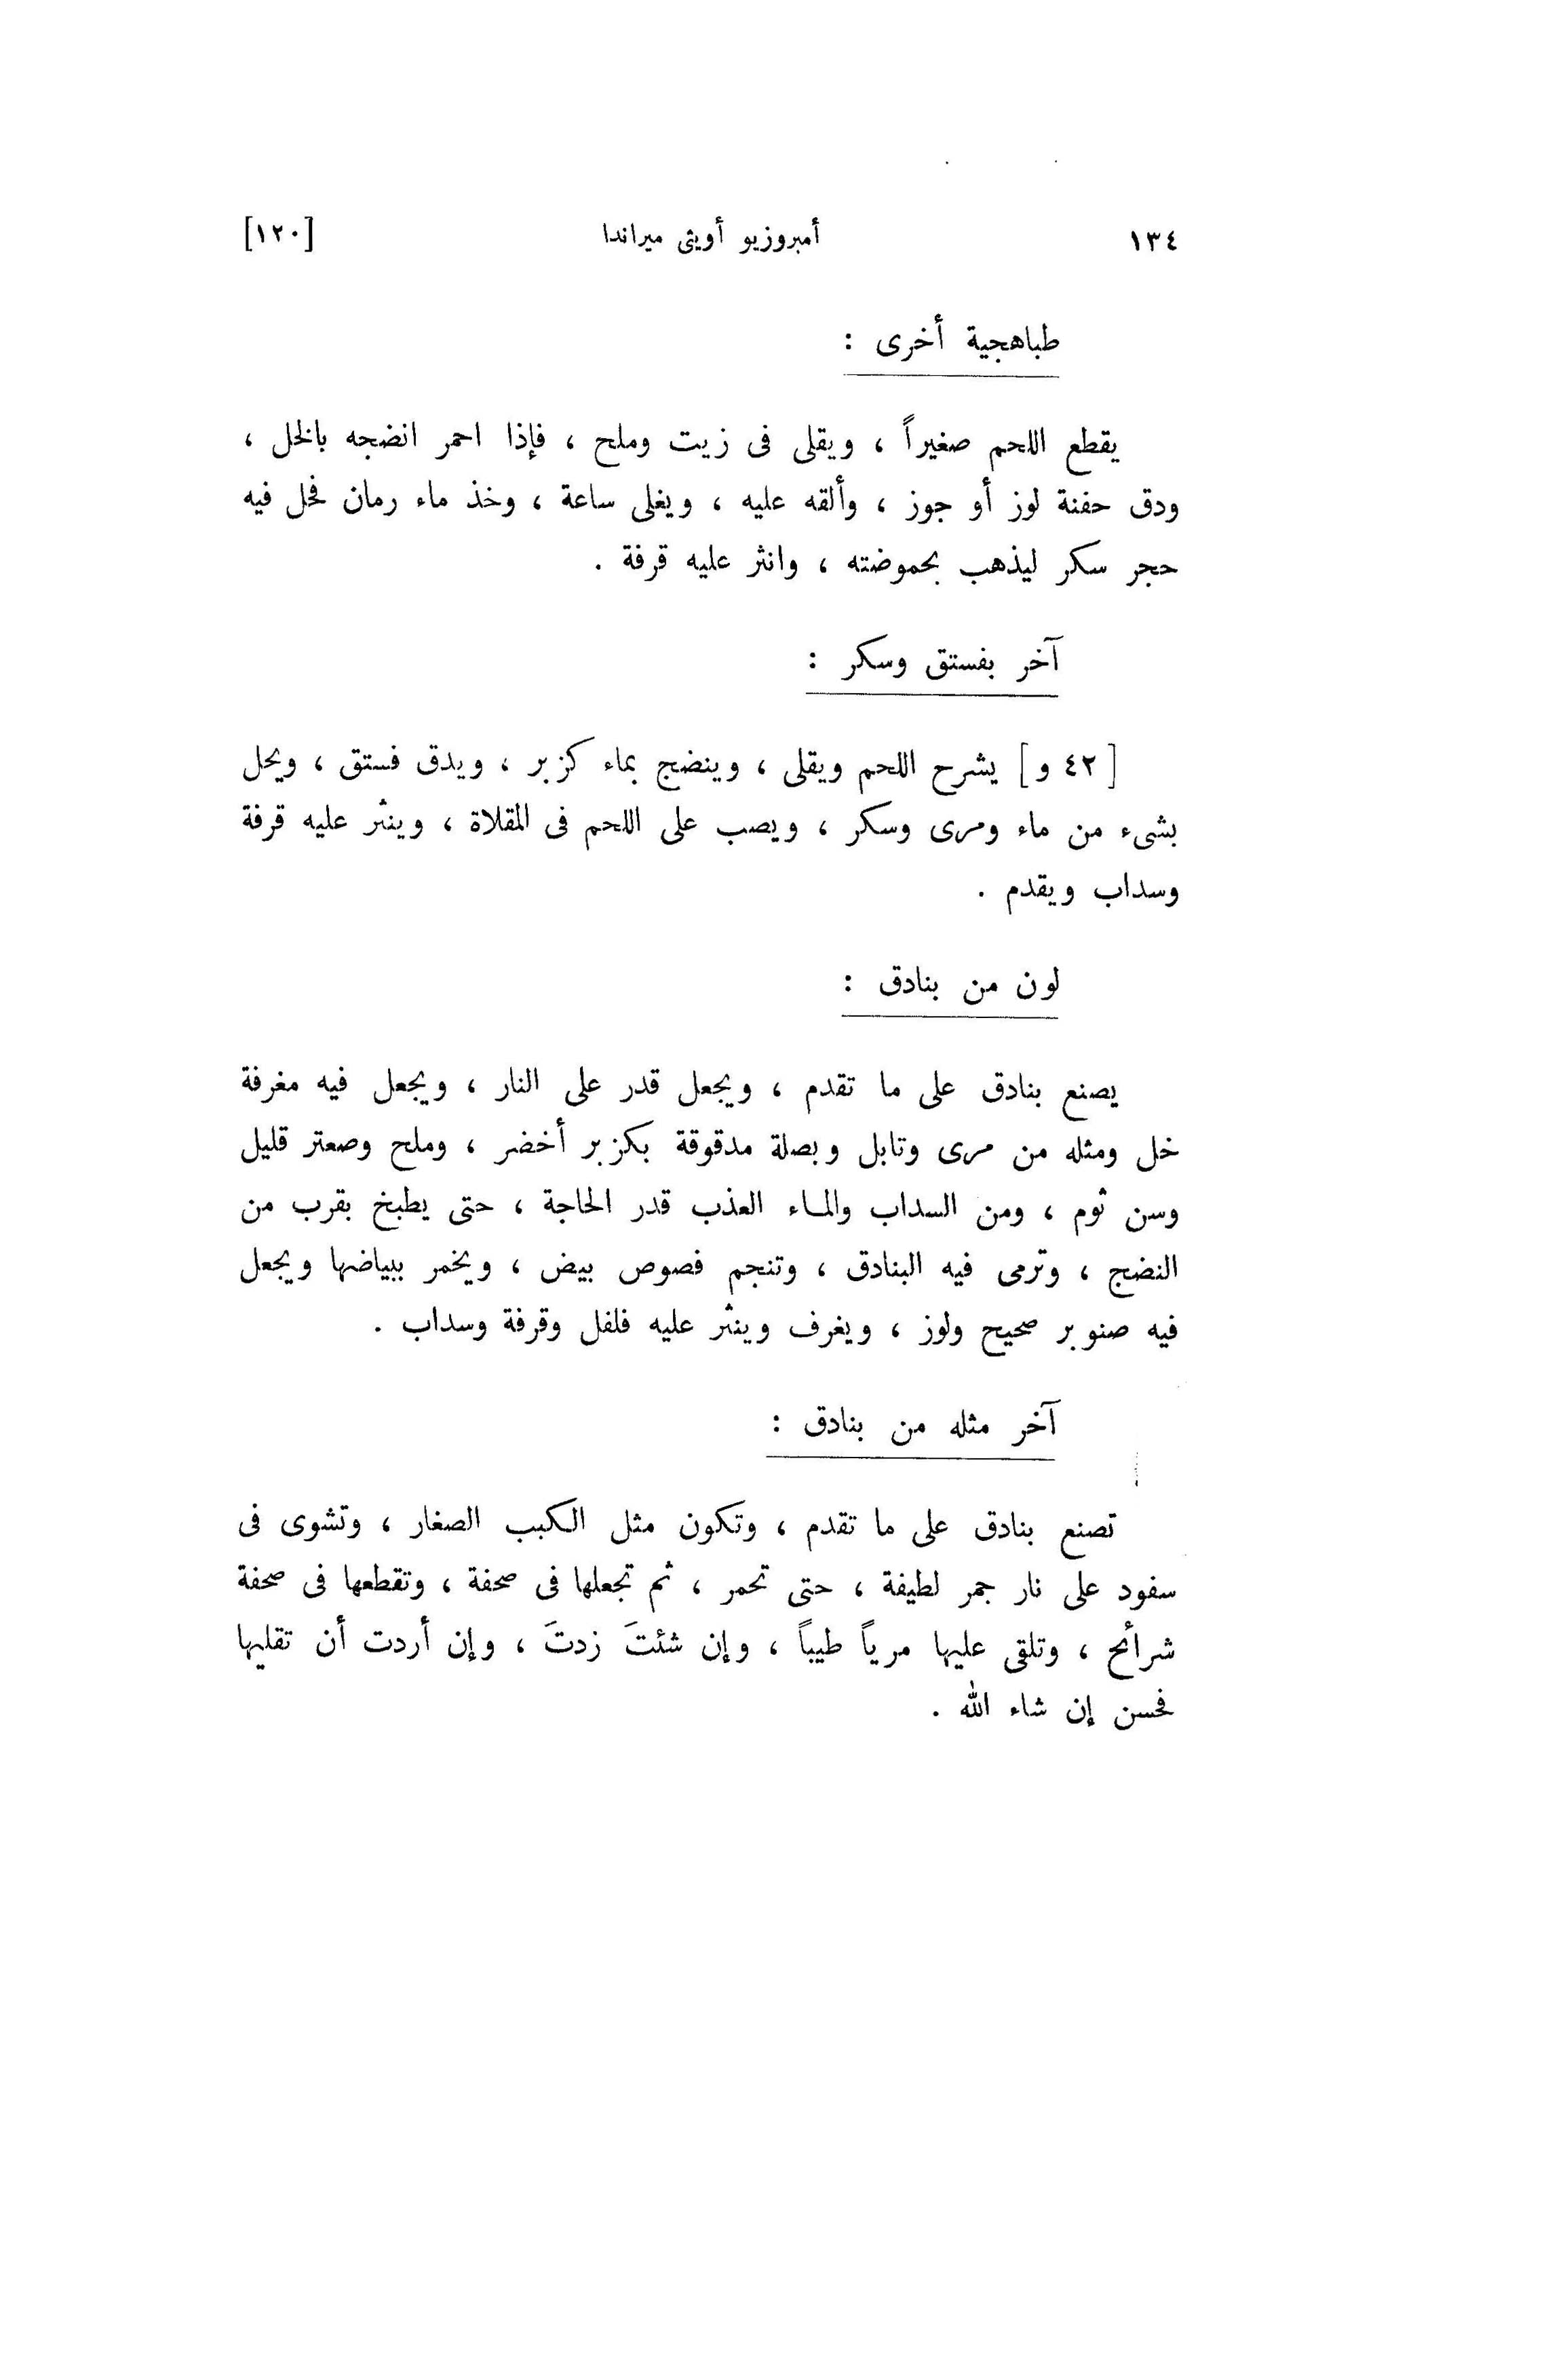 ١٣٤ أمبروزيو أويثى ميراندا [١٢٠]
طباهجية أخرى :
يقطع اللحم صغيراً ، ويقلى فى زيت وملح ، فإذا احمر انضجه بالخل ،
ودق حفنة لوز أو جوز ، وألقه عليه ، ويغلى ساعة ، وخذ ماء رمان فحل فيه
حجر سكر ليذهب بحموضته ، وانثر عليه قرفة .
آخر بفستق وسكر :
[ ٤٢ و ] يشرح اللحم ويقلى ، وينضج بماء كزبر ، ويدق فستق ، ويحل
بشىء من ماء ومرى وسكر ، ويصب على اللحم فى المقلاة ، وينثر عليه قرفة
وسداب ويقدم .
لون من بنادق :
يصنع بنادق على ما تقدم ، ويجعل قدر على النار ، ويجعل فيه مغرفة
خل ومثله من مرى وتابل وبصلة مدقوقة بكزبر أخضر ، وملح وصعتر قليل
وسن ثوم ، ومن السداب والماء العذب قدر الحاجة ، حتى يطبخ بقرب من
النضج ، وترمى فيه البنادق ، وتنجم فصوص بيض ، ويخمر ببياضها ويجعل
فيه صنوبر صحيح ولوز ، ويغرف وينثر عليه فلفل وقرفة وسداب .
آخر مثله من بنادق :
تصنع بنادق على ما تقدم ، وتكون مثل الكبب الصغار ، وتشوى فى
سفود على نار جمر لطيفة ، حتى تحمر ، ثم تجعلها فى صحفة ، وتقطعها فى صحفة
شرائح ، وتلقى عليها مرياً طيباً ، وإن شئتَ زدتَ ، وإن أردت أن تقليها
فحسن إن شاء الله .